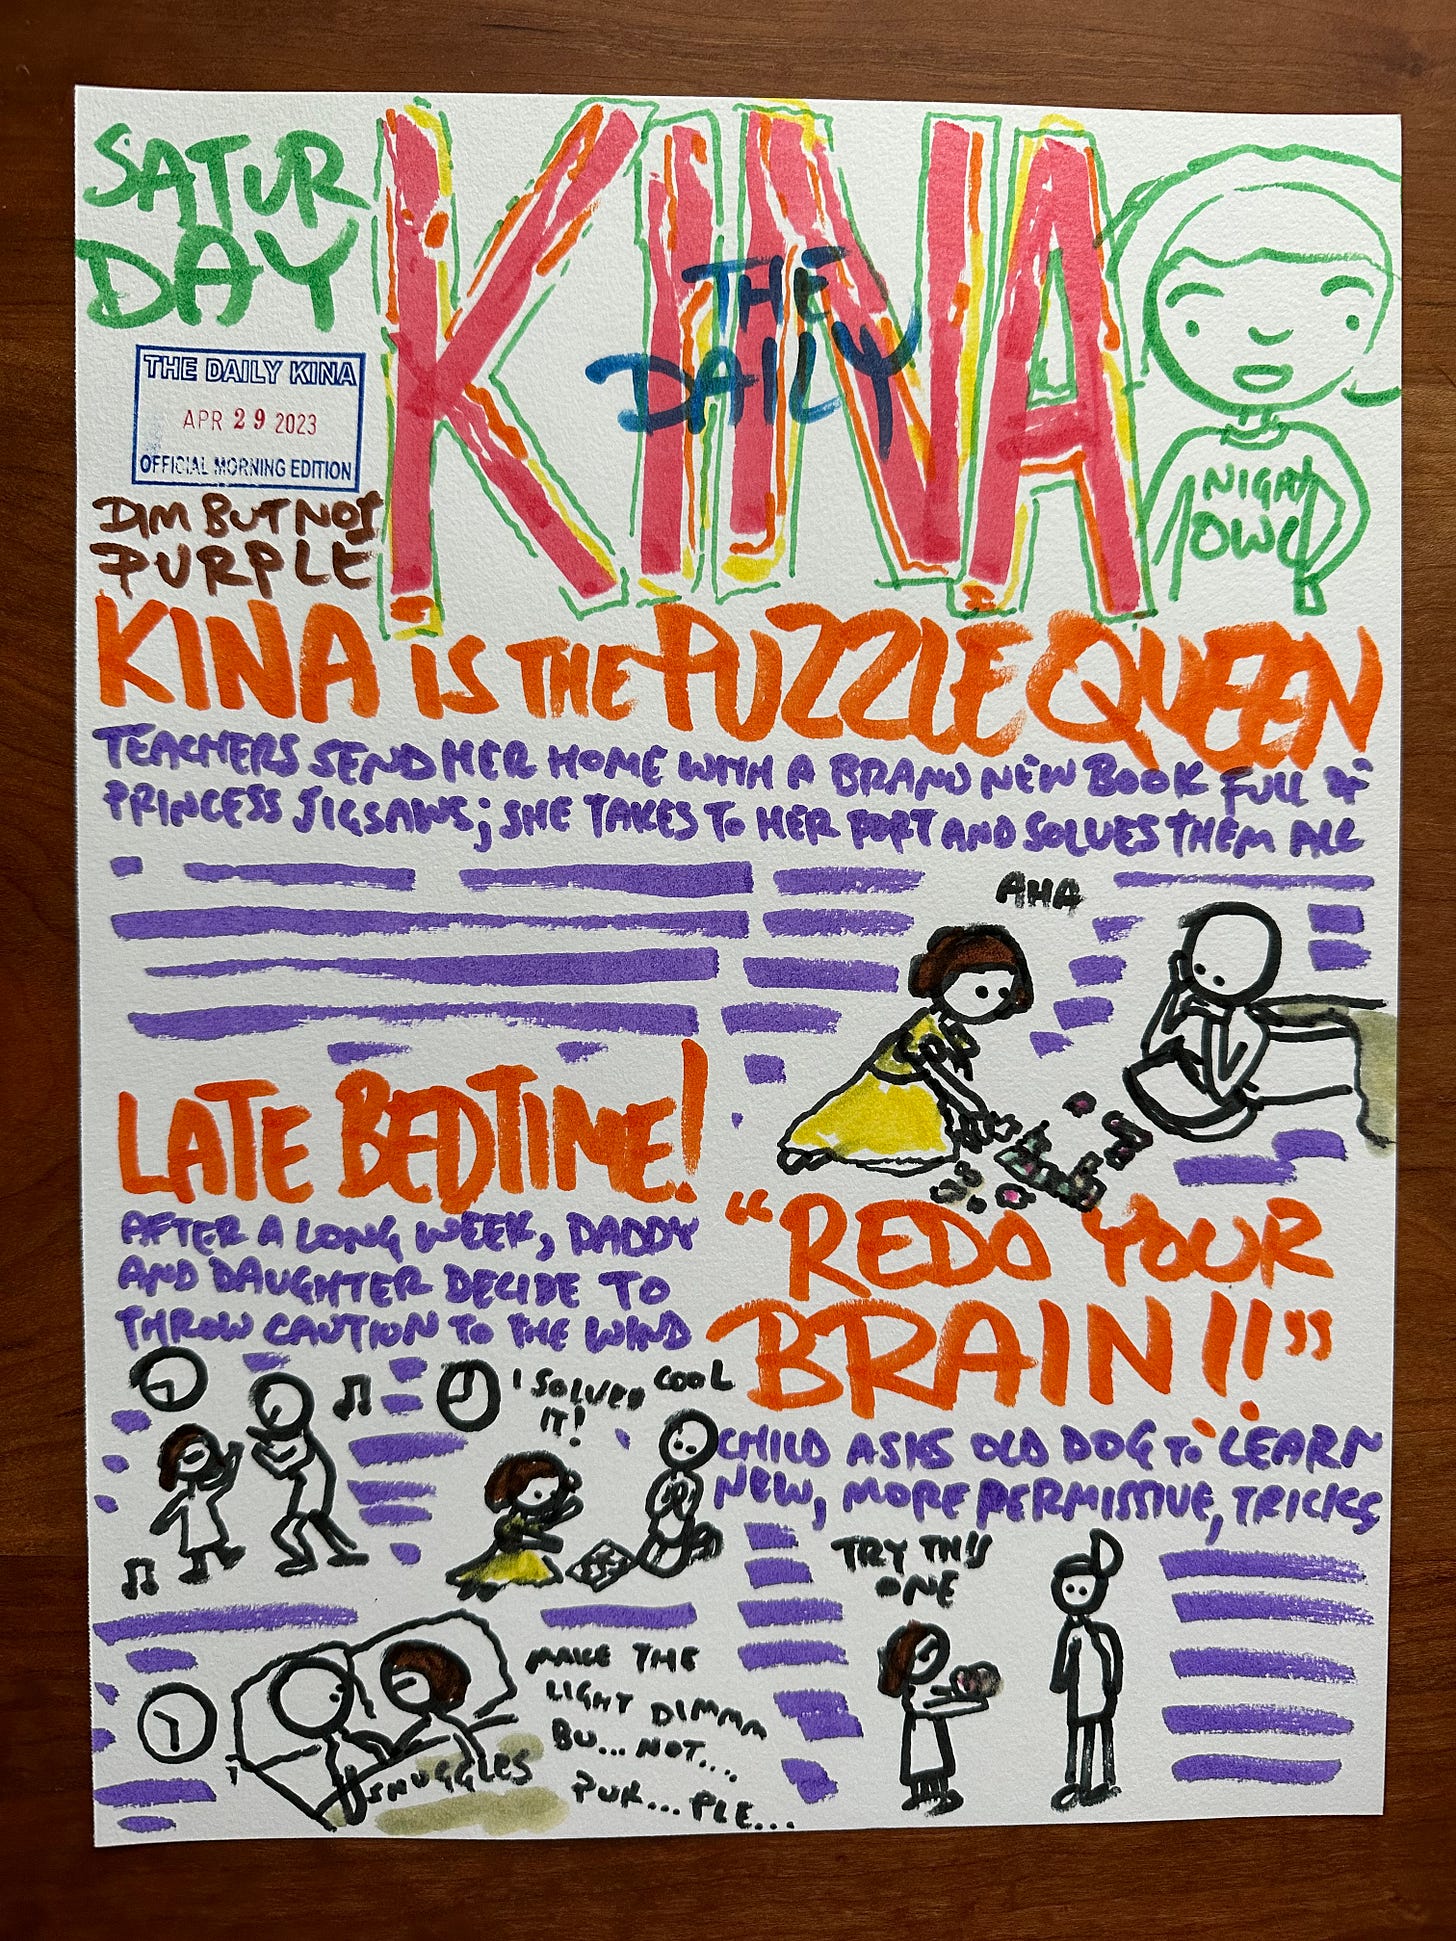 SATUR
DAY
KINA
THE
DAILY
THE DAILY KINA
APR 29 2023
OFFICIAL MORNING EDITION
DIM BUT NOT
PURPLE
NIGHT
OWL
KINA IS THE PUZZLE QUEEN
TEACHERS SEND HER HOME WITH A BRAND NEW BOOK FULL OF
PRINCESS JIGSAWS; SHE TAKES TO HER FORT AND SOLVES THEM ALL
AHA
LATE BEDTIME!
AFTER A LONG WEEK, DADDY
AND DAUGHTER DECIDE TO
THROW CAUTION TO THE WIND
I SOLVED
IT!
COOL
MAKE THE
LIGHT DIMMM
BU... NOT....
PUR... PLE...
SNUGGLES
"REDO YOUR
BRAIN!!"
CHILD ASKS OLD DOG TO LEARN
NEW, MORE PERMISSIVE, TRICKS
TRY THIS
ONE